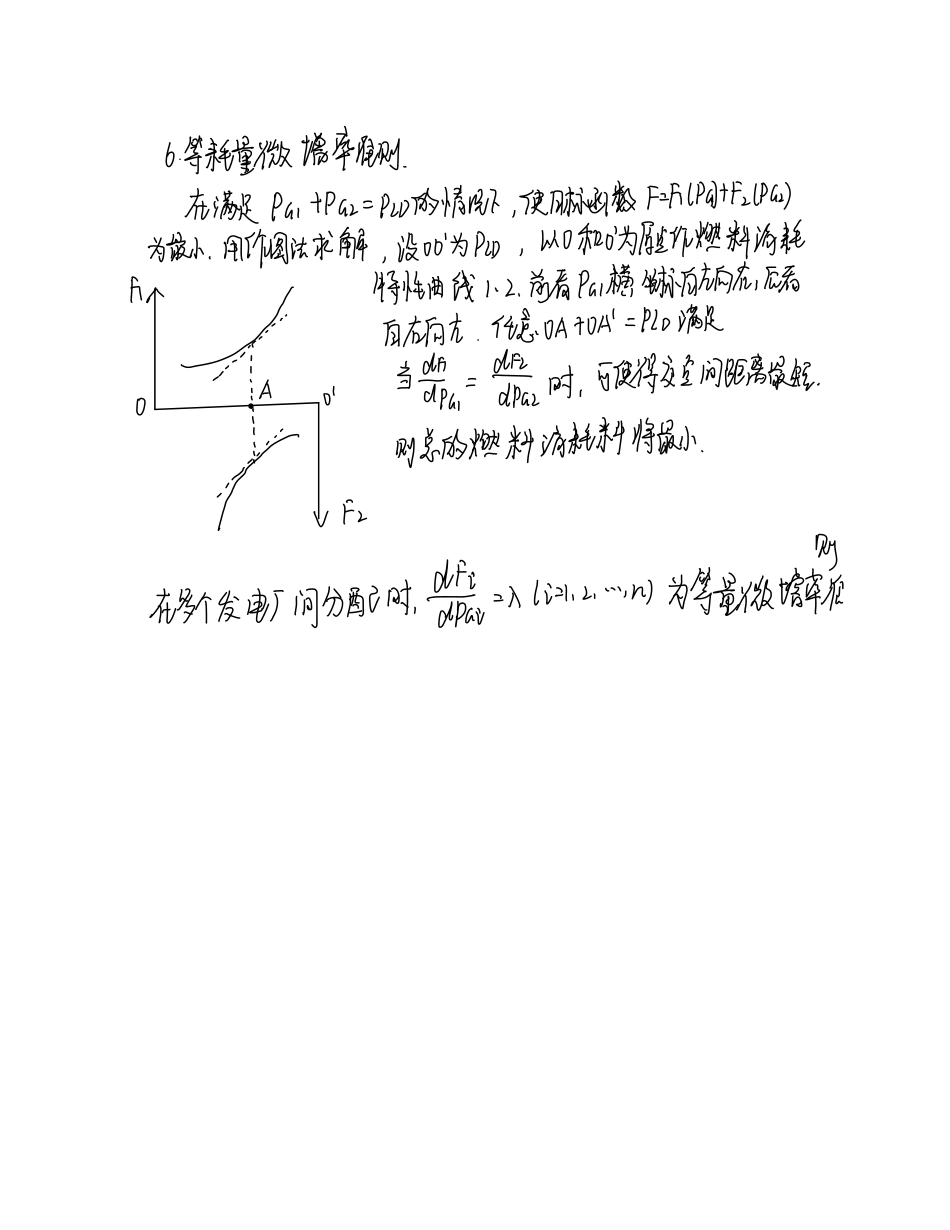 6.等耗量微增率准则.
在满足 PG1+PG2=PLD的情况下,使目标函数 F=F1(PG)+F2(PG2)
为最小.用作图法求解,设OO'为PLD,以O和O'为原点作燃料消耗
特性曲线1、2.前者PG1横坐标自左向右,后者
自右向左.任意OA+OA'=PLD满足
当 dF1/dPG1 = dF2/dPG2 时,可使得交点间距离最短.
则总的燃料消耗料将最小.
F1
A
O
O'
F2
则
在多个发电厂间分配时, dFi/dPGi =λ (i=1,2,…,n) 为等量微增率